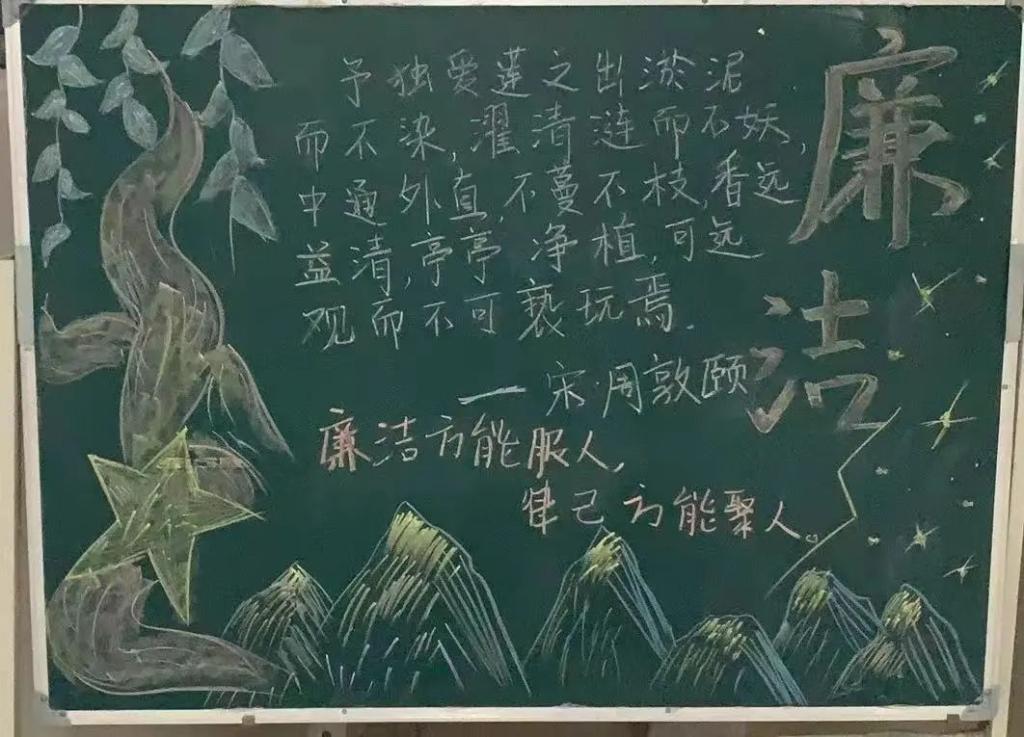 廉洁
予独爱莲之出淤泥
而不染,濯清涟而不妖,
中通外直,不蔓不枝,香远
益清,亭亭净植,可远
观而不可亵玩焉.
—宋·周敦颐
廉洁方能服人,
律己方能聚人。